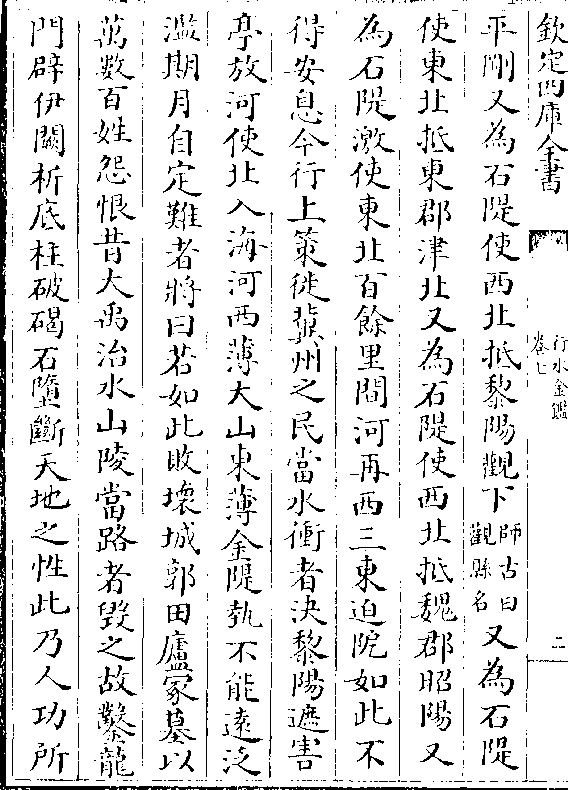 欽定四庫全書
行水金鑑
卷七
二
平剛又為石隄使西北抵黎陽觀下師古曰觀縣名又為石隄
使東北抵東郡津北又為石隄使西北抵魏郡昭陽又
為石隄激使東北百餘里間河再西三東迫阨如此不
得安息今行上策徙冀州之民當水衝者決黎陽遮害
亭放河使北入海河西薄大山東薄金隄埶不能遠泛
濫期月自定難者將曰若如此敗壞城郭田廬冢墓以
萬數百姓怨恨昔大禹治水山陵當路者毀之故鑿龍
門辟伊闕析底柱破碣石墮斷天地之性此乃人功所